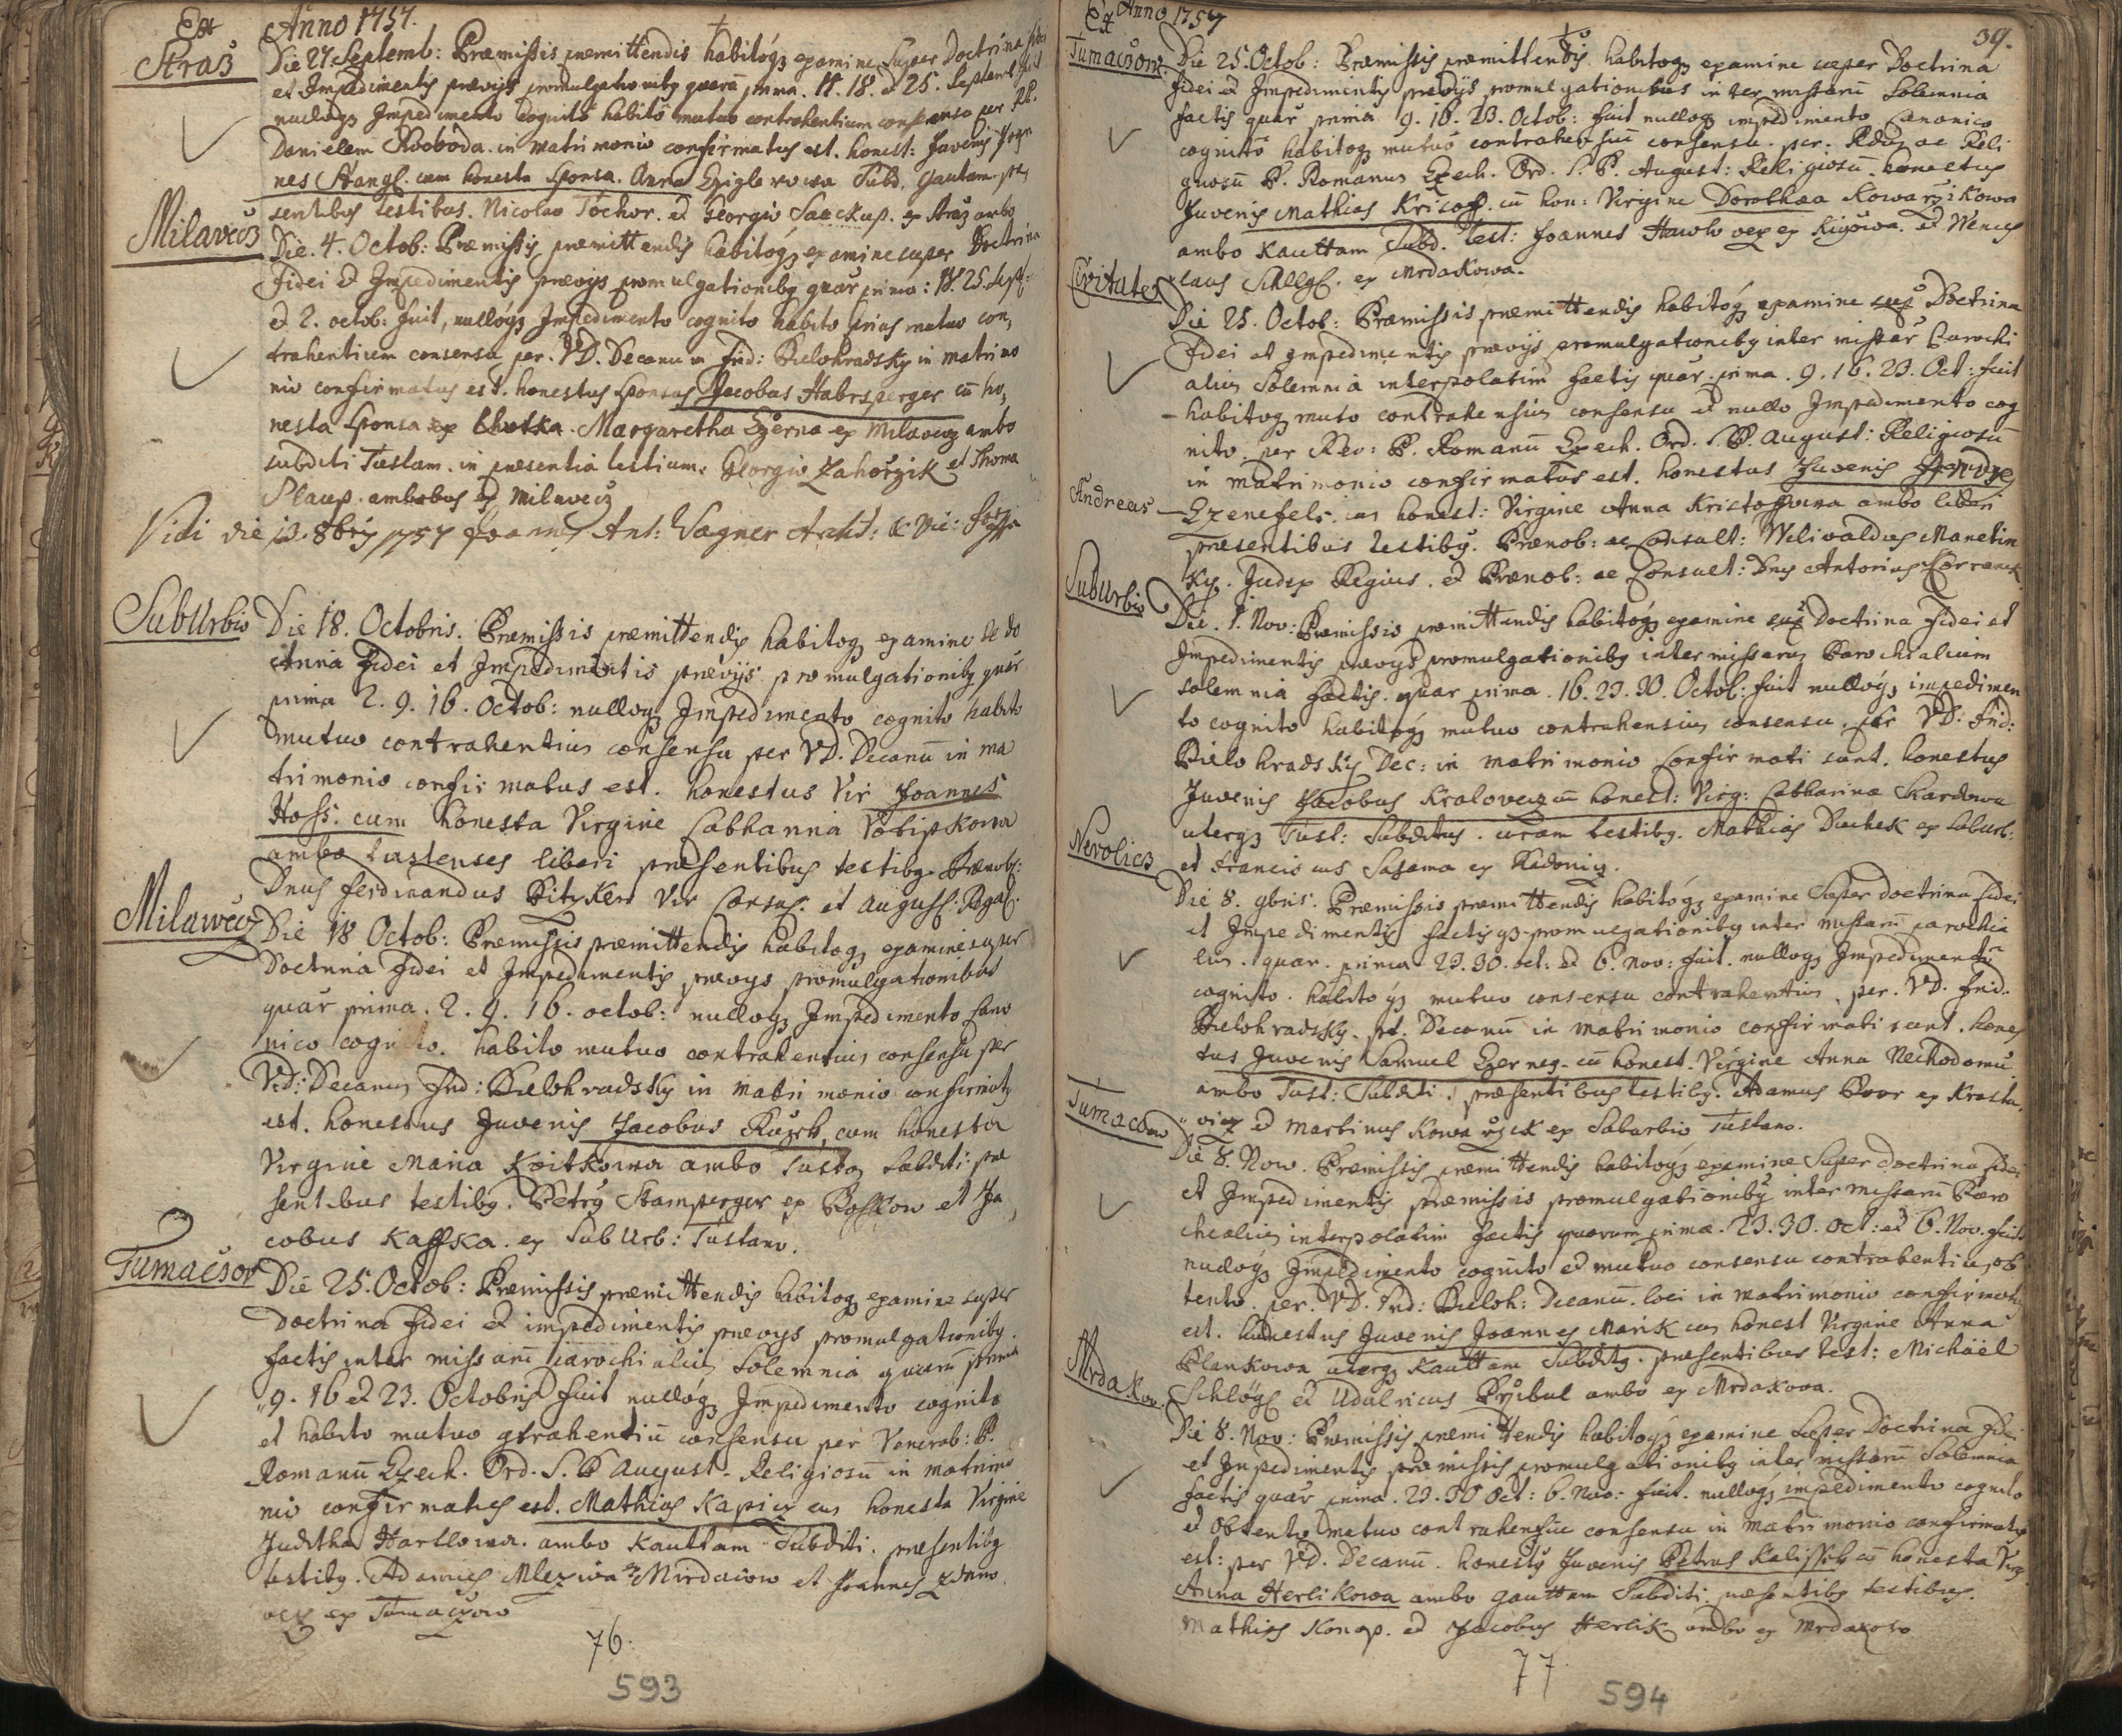 Ex Anno 1757.
Straž
Die 27 Septemb: Præmissis præmittendis habitóq₃ examine super Doctrina fidei
et Impedimentis prævijs promulgationibq quarū prima. 11. 18. et 25. Septemb: fuit
nullóq₃ Impedimento cognito habito mutuo contrahentium consensu per RP.
Danielem Swoboda in matrimonio confirmatus est. honest: Juvenis Joan
nes Stangl. cum honesta Sponsa. Anna Cziglerowa Subd. Gautam. præ
sentibus testibus. Nicolao Tochor. et Georgio Saeckup. ex Straz ambo
Milavecz
Die. 4. Octob: Præmissis præmittendis habitóq₃ examine super Doctrina
fidei et Impedimentis prævijs promulgationibq quar prima: 18. 25. Sept:
et 2. octob: fuit, nullóq₃ Impedimento cognito habito prius mutuo con,
trahentium consensu per. VD. Decanum Frid: Bielohradsky in matrimo
nio confirmatus est. honestus sponsus Jacobus Habrsperger cū ho,
nesta Sponsa ex Lhotka. Margaretha Czerna ex Milavecz ambo
subditi Tustam. in præsentia testium. Georgio Zahořzik et Thoma
Plaup. ambobus ex Milavecz
Vidi die 13. 8bris 1757 Joannes Ant: Wagner Archid: & Vic: For:
SubUrbio
Die 18. Octobris. Præmissis præmittendis habitoq₃ examine de do
ctrina fidei et Impedimentis prævijs promulgationibq quar
prima 2. 9. 16. Octob: nulloq₃ Impedimento cognito habito
mutuo contrahentium consensu per VD. Decanū in ma
trimonio confirmatus est. honestus Vir Joannes
Hoss: cum honesta Virgine Catharina Votipkowa
ambo tustenses liberi præsentibus testibq. Prænob:
Dnus Ferdinandus Vir Consul. et August.
Milawecz
Die 18 Octob: Præmissis præmittendis habitoq₃ examine super
Doctrina fidei et Impedimentis prævijs promulgationibus
quar prima. 2. 9. 16. octob: nullóq₃ Impedimento Cano
nico cognito. habito mutuo contrahentium consensu per
VD: Decanum Frid: Bielohradsky in matrimonio confirmatq
est. honestus Juvenis Jacobus cum honesta
Virgine Maria Koitkowa ambo Tusta, Subditi: præ
sentibus testibq. Petrq Stamperger ex et Ja,
cobus Kaffka. ex SubUrb: Tustano.
Tumačsow
Die 25. Octob: Præmissis præmittendis habitoq₃ examine super
Doctrina fidei et impedimentis prævijs promulgationibq.
factis inter missarū parochialium Solemnia quarū prima
9. 16 et 23. Octobris fuit nullóq₃ Impedimento cognito
et habito mutuo gtrahentiū consensu per Venerab: P.
Romanū Czech. Ord. S. P August. Religiosū in matrimo
nio confirmatus est. Mathias Kapicz cum honesta Virgine
Juditha Hartlowa. ambo Kauttam Subditi. præsentibq
testibq. Adamus Mleziwa ex Mirdacow et Joannes
ex Tumaczow
76.
593
Ex Anno 1757
39.
Tumačsow
Die 25. Octob: Præmissis præmittendis habitoq₃ examine super Doctrina
fidei et Impedimentis prævijs promulgationibus inter missarū Solemnia
factis quar prima 9. 16. 23. Octob: fuit nulloq₃ impedimento Canonico
cognito habitoq₃ mutuo contrahensiū consensu. per. Rdum ac Reli
giosū P. Romanum Czech. Ord. S. P. August: Religiosū. honestus
Juvenis Mathias Kristoff. cū hon: Virgine Dorothæa Kowarzikowa
ambo Kauttam Subd. test: Joannes ex et Wences
laus Schllgl. ex Mrdakowa.
Civitate
Die 25. Octob: Præmissis præmittendis habitóq₃ examine sup Doctrina
Fidei et Impedimentis prævijs promulgationibq inter missar Parochi
alium Solemnia interpolatim factis quar. prima. 9. 16. 23. Oct: fuit
habitoq₃ mutuo contrahensium consensu et nullo Impedimento cog
nito. per Rev: P. Romanū Czech. Ord. S. P. August: Religiosū
in matrimonio confirmatus est. honestus Juvenis
Andreas Czenefels. cum honest: Virgine Anna Kristoffowa ambo liberi
præsentibus testibq. Prænob: ac Consult: Wilibaldus Manetin
ský. Judex Regius. et Prænob: ac Consult: Dnus Antonius
SubUrbio
Die. 1. Nov: Præmissis præmittendis habitóq₃ examine sup Doctrina Fidei et
Impedimentis prævijs promulgationibq inter missarum Parochialium
solemnia factis. quar prima. 16. 23. 30. Octob: fuit nullóq₃ impedimen
to cognito habitóq₃ mutuo contrahensium consensu, per VD: Frid:
Bielohradský Dec: in matrimonio confirmati sunt. honestus
Juvenis Jacobus Kralovecz cū honest: Virg: Catharina Skardowa
uterq₃ Tust: Subditus. coram testibq. Mathias Duchek ex Suburb:
et Franciscus Sasama ex
Nevolicz
Die 8. 9bris. Præmissis præmittendis habitóq₃ examine Super doctrina fidei
et Impedimentis factisq₃ promulgationibq inter missarū parochia
lium. quar. prima 23. 30. oct: et 6. Nov: fuit. nulloq₃ Impedimentū
cognito. habitóq₃ mutuo consensu contrahentium. per. VD. Frid.
Bielohradsky. pt. Decanū in matrimonio confirmati sunt. hones
tus Juvenis Samuel Czerney. cū honest. Virgine Anna Nechodomu
ambo Tust: Subditi. præsentibus testibq. Adamus ex Krasta
vicz et Martinus Kowařzick ex Suburbio Tustano.
Tumacow
Die 8. Now. Præmissis præmittendis habitoq₃ examine Super doctrina fidei
et Impedimentis præmissis promulgationibq inter missarū Paro
chialium interpolatim factis quarum prima. 23. 30. Oct: et 6. Nov. fuit
nullóq₃ Impedimento cognito et mutuo consensu contrahentium ob
tento. per. VD. Frid: Bieloh: Decanū. loci in matrimonio confirmatus
est. honestus Juvenis Joannes Marik cum honest Virgine Anna
Plankowa uterq₃ Kauttam Subditq. præsentibus test: Michäel
Schlögl et Udalricus Přzibul ambo ex Mrdakowa.
Mrdakov.
Die 8. Nov: Præmissis præmittendis habitóq₃ examine Super Doctrina Fidei
et Impedimentis præmissis promulgationibq inter missarū Solemnia
factis quar prima. 23. 30 Oct: 6. Nov: fuit. nullóq₃ impedimento cognito
et obtento mutuo contrahensiū consensu in matrimonio confirmatus
est: per VD. Decanū. honestq Juvenis Petrus Kalissek cū honesta Virg
Anna Herlikowa ambo Gauttam Subditi: præsentibq testibus.
Mathias Konop. et Jacobus Herlik ambo ex Mrdakow
77
594